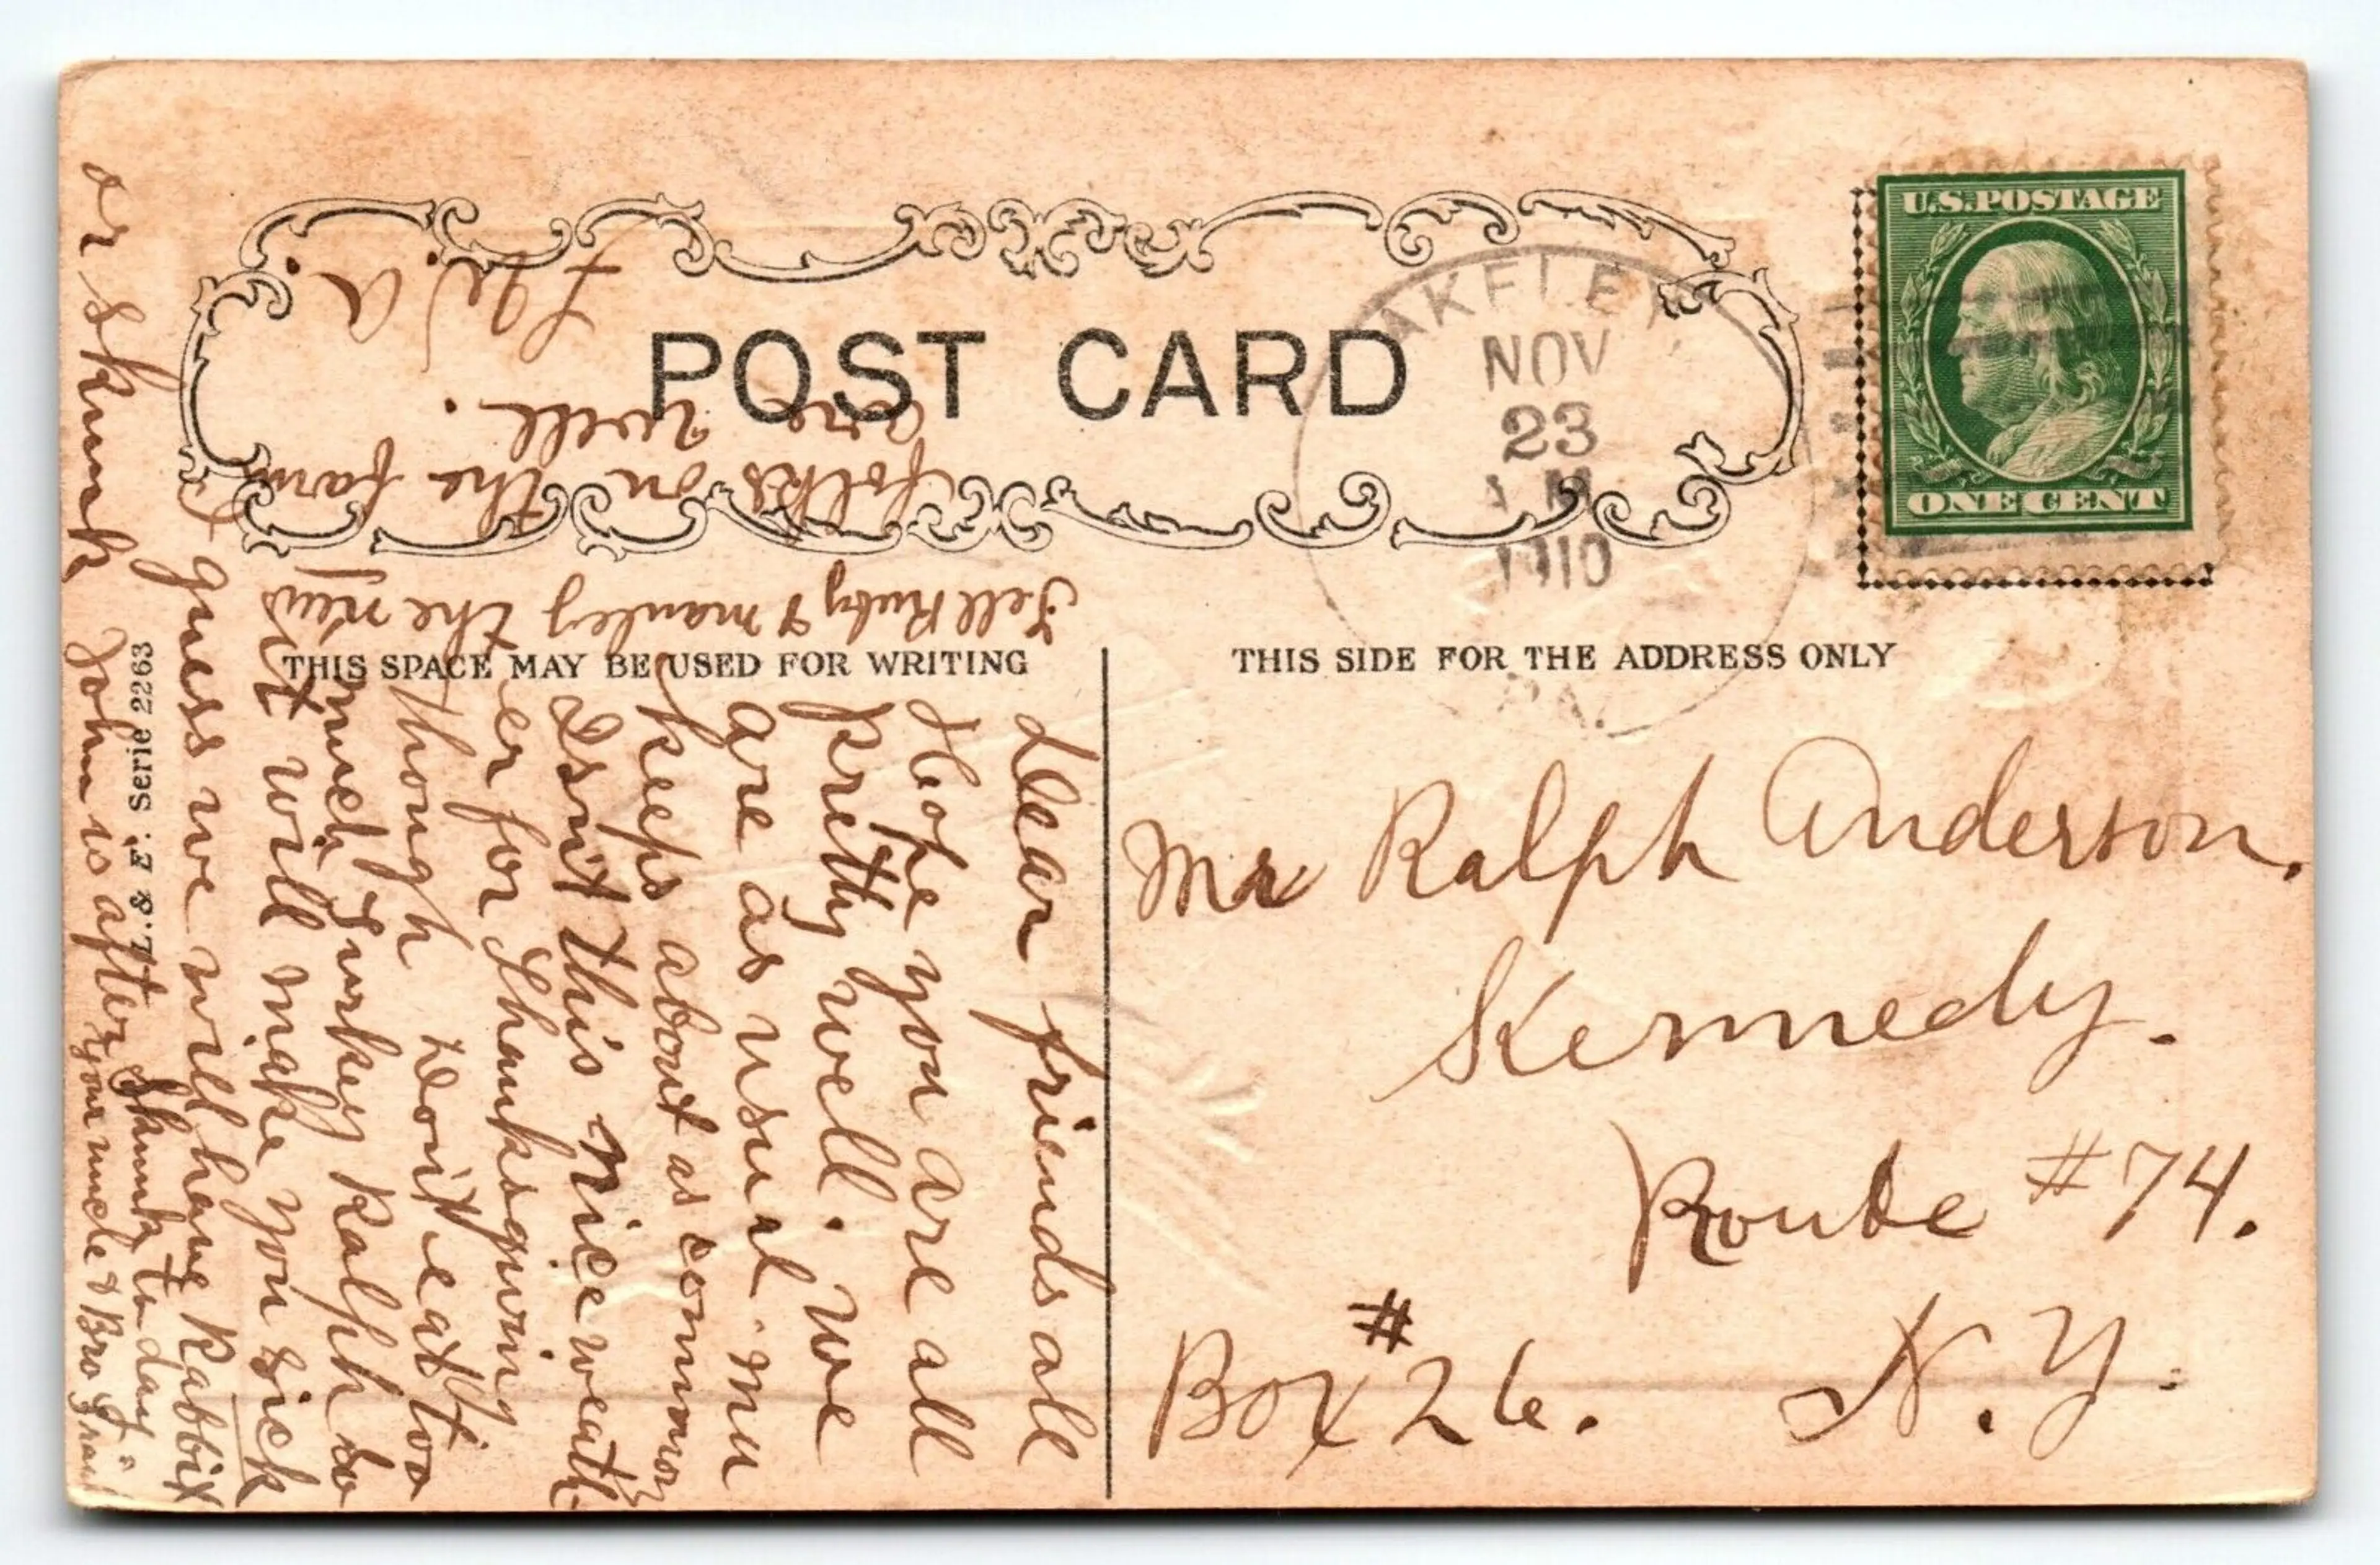 POST CARD
AKELEY
NOV
23
1910
PA.
U.S. POSTAGE
ONE CENT
THIS SPACE MAY BE USED FOR WRITING
THIS SIDE FOR THE ADDRESS ONLY
Mr Ralph Anderson.
Kennedy.
Route #74.
Box #26. N.Y.
L. & E. Serie 2263
Dear friends all
Hope you are all
pretty well. we
are as usual.
keeps about as common
Isn't this nice weath-
er for Thanksgiving
though don't eat too
much Turkey Ralph
it will make you sick
I guess we will have Rabbit
or skunk John is after skunk to day
your uncle & Bro
Tell Ruby & manley the new
folks on the farm
are well.